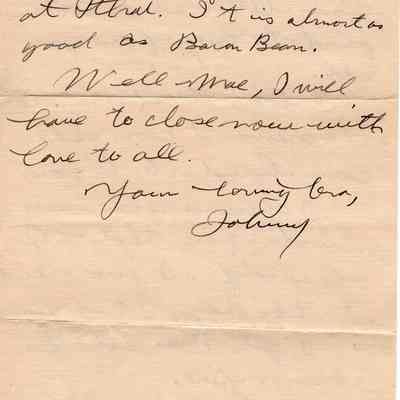 at . It is almost as
good as Baron Bean.
Well Mae, I will
have to close now with
love to all.
Your loving Bro,
Johnny